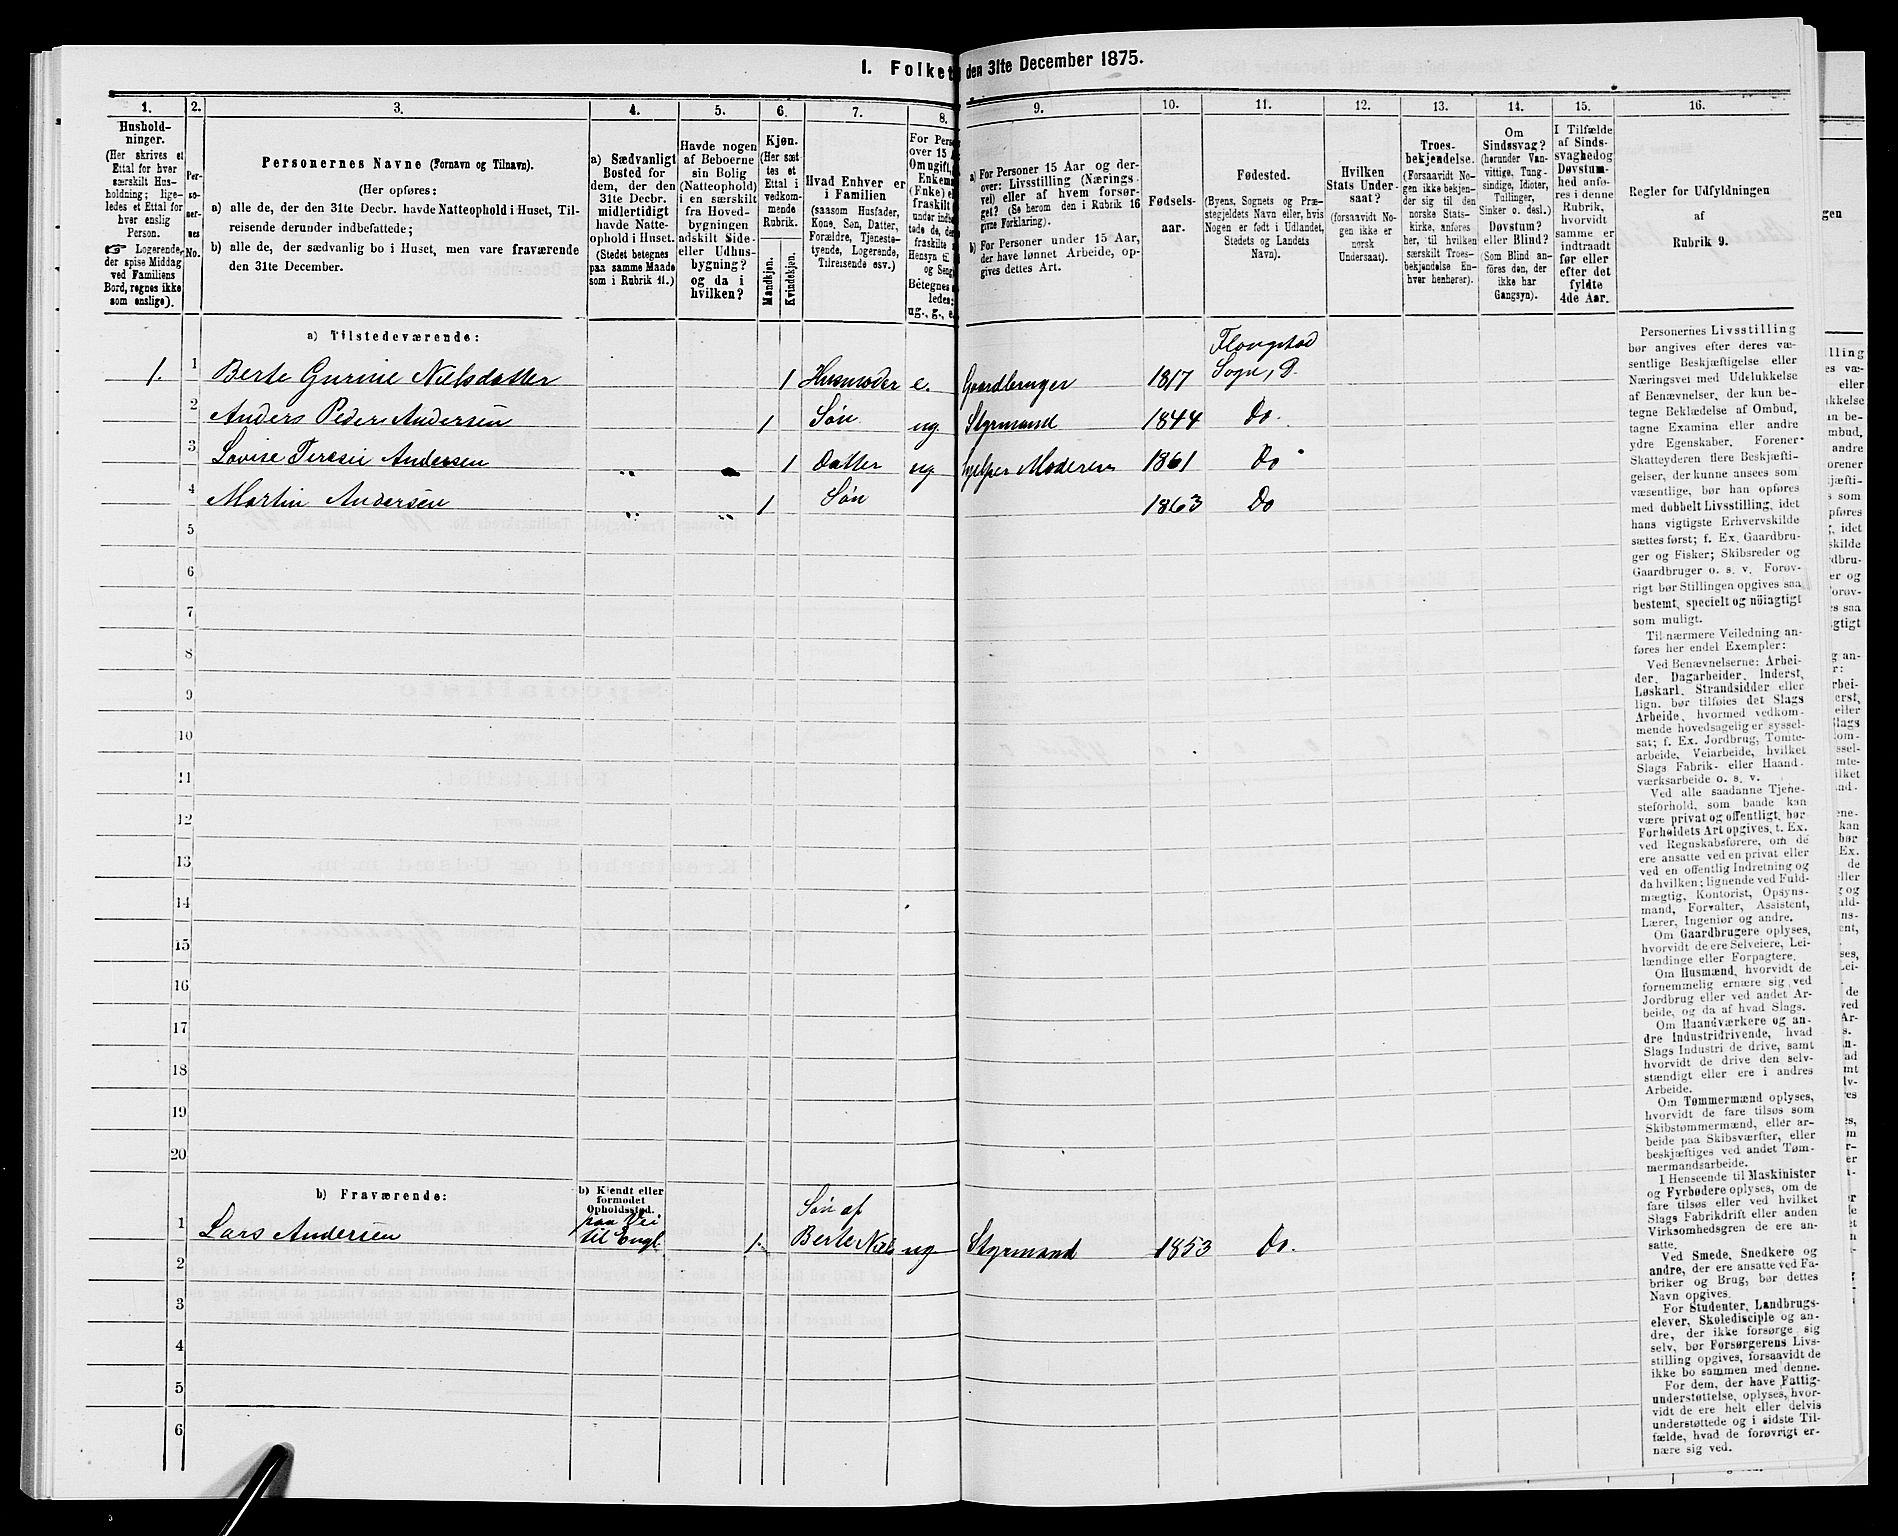 I. Folket den 31te December 1875.
1. 2. 3. 4. 5. 6. 7. 8. 9. 10. 11. 12. 13. 14. 15. 16.
Hushold-
ninger.
(Her skrives et
Ettal for hver
særskilt Hus-
holdning; lige-
ledes et Ettal for
hver enslig
Person.
Logerende,
der spise Middag
ved Familiens
Bord, regnes ikke
som enslige).
Per-
so-
ner-
nes
No.
Personernes Navne (Fornavn og Tilnavn).
(Her opføres:
a) alle de, der den 31te Decbr. havde Natteophold i Huset, Til-
reisende derunder indbefattede;
b) alle de, der sædvanlig bo i Huset, men vare fraværende
den 31te December.
a) Sædvanligt
Bosted for
dem, der den
31te Decbr.
midlertidigt
havde Natte-
ophold i Huset.
(Stedet betegnes
paa samme Maade
som i Rubrik 11.)
Havde nogen
af Beboerne
sin Bolig
(Natteophold)
i en særskilt
fra Hoved-
bygningen
adskilt Side-
eller Udhus-
bygning?
og da i
hvilken?
Kjøn.
(Her sæt
tes et
Ettal i
vedkom-
mende
Rubrik.
Mandkjøn.
Kvindekjøn.
Hvad Enhver er
i Familien
(saasom Husfader,
Kone, Søn, Datter,
Forældre, Tjeneste-
tyende, Logerende,
Tilreisende osv.)
For Pers
over 15 A
Om ugift,
Enkem
(Enke) e
fraskilt
under indbe
tede de, der
fraskilte
Hensyn til
og Seng
Betegnes
ledes:
ug., g., e.
a) For Personer 15 Aar og der-
over: Livsstilling (Nærings-
vei) eller af hvem forsør-
get? (Se herom den i Rubrik 16
givne Forklaring).
b) For Personer under 15 Aar,
der have lønnet Arbeide, op-
gives dettes Art.
Fødsels-
aar.
Fødested.
(Byens, Sognets og Præ-
stegjeldets Navn eller, hvis
Nogen er født i Udlandet,
Stedets og Landets
Navn).
Hvilken
Stats Under-
saat?
(forsaavidt No-
gen ikke er
norsk
Undersaat).
Troes-
bekjendelse.
(Forsaavidt No-
gen ikke bekjen-
der sig til den
norske Stats-
kirke, anføres
her, til hvilken
særskilt Troes-
bekjendelse En-
hver henhører).
Om
Sindssvag?
(herunder Van-
vittige, Tung-
sindige, Idioter,
Tullinger,
Sinker o. desl.)
Døvstum?
eller Blind?
(Som Blind an-
føres den, der
ikke har
Gangsyn).
I Tilfælde
af Sinds-
svaghed og
Døvstum-
hed anfø-
res i denne
Rubrik,
hvorvidt
samme er
indtraadt
før eller
efter det
fyldte
4de Aar.
Regler for Udfyldningen
af
Rubrik 9.
a) Tilstedeværende:
Flougstad
1. 1 Berte Gurine Nielsdatter 1 Husmoder e. Gaardbruger 1817 Sogn, P.
2 Anders Peder Andersen 1 Søn ug Styrmand 1844 Do.
3 Lovise Teresie Andersen „ 1 Datter ug hjelper Moderen 1861 Do
4 Martin Andersen „ „ 1 Søn 1863 Do
5
6
7
8
9
10
11
12
13
14
15
16
17
18
19
20
b) Fraværende:
b) Kjendt eller
formodet
Opholdssted.
paa Vei Søn af
1 Lars Andersen til Engl. 1. Berte Niels ug Styrmand 1853 Do.
2
3
4
5
6
Personernes Livsstilling
bør angives efter deres væ-
sentlige Beskjæftigelse eller
Næringsvei med Udelukkelse
af Benævnelser, der kun be-
tegne Beklædelse af Ombud,
tagne Examina eller andre
ydre Egenskaber. Forener
Skatteyderen flere Beskjæfti-
gelser, der kunne ansees som
væsentlige, bør han opføres
med dobbelt Livsstilling, idet
hans vigtigste Erhvervskilde
sættes først; f. Ex. Gaardbru-
ger og Fisker; Skibsreder og
Gaardbruger o. s. v. Forøv-
rigt bør Stillingen opgives saa
bestemt, specielt og nöiagtigt
som muligt.
Til nærmere Veiledning an-
føres her endel Exempler:
Ved Benævnelserne: Arbei-
der, Dagarbeider, Inderst,
Løskarl, Strandsidder eller
lign. bør tilføies det Slags
Arbeide, hvormed vedkom-
mende hovedsagelig er syssel-
sat; f. Ex. Jordbrug, Tomte-
arbeide, Veiarbeide, hvilket
Slags Fabrik- eller Haand-
værksarbeide o. s. v.
Ved alle saadanne Tjene-
steforhold, som baade kan
være privat og offentligt, bør
Forholdets Art opgives, t. Ex.
ved Regnskabsførere, om de
ere ansatte ved en privat eller
ved en offentlig Indretning og
da hvilken; lignende ved Fuld-
mægtig, Kontorist, Opsyns-
mand, Forvalter, Assistent,
Lærer, Ingeniør og andre.
Om Gaardbrugere oplyses,
hvorvidt de ere Selveiere, Lei-
lændinge eller Forpagtere.
Om Husmænd, hvorvidt de
fornemmelig ernære sig ved
Jordbrug eller ved andet Ar-
beide, og da af hvad Slags.
Om Haandværkere og an-
dre Industridrivende, hvad
Slags Industri de drive, samt
hvorvidt de drive den selv-
stændigt eller ere i andres
Arbeide.
Om Tømmermænd oplyses,
hvorvidt de fare tilsøs som
Skibstømmermænd, eller ar-
beide paa Skibsværfter, eller
beskjæftiges ved andet Tøm-
mermandsarbeide.
I Henseende til Maskinister
og Fyrbødere oplyses, om de
fare tilsøs eller ved hvilket
Slags Fabrikdrift eller anden
Virksomhedsgren de ere an-
satte.
Ved Smede, Snedkere og
andre, der ere ansatte ved Fa-
briker og Brug, bør dettes
Navn opgives.
For Studenter, Landbrugs-
elever, Skoledisciple og an-
dre, der ikke forsørge sig
selv, bør Forsørgerens Livs-
stilling opgives, forsaavidt de
ikke bo sammen med denne.
For dem, der have Fattig-
understøttelse, oplyses, hvor-
vidt de ere helt eller delvis
understøttede og i sidste Til-
fælde, hvad de forøvrigt er-
nære sig ved.